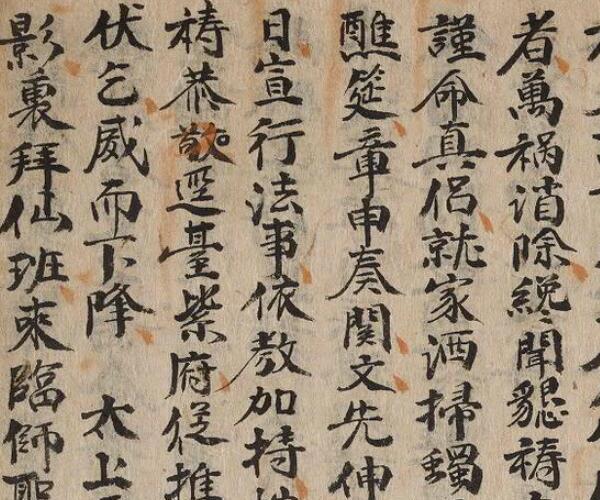 者萬禍消除纔聞懇禱
謹命真侶就家洒掃蠲
醮筵章申奏関文先伸
日宣行法事依教加持
祷恭臺紫府從推
伏乞威而下降　太上
影裏拜仙班來臨師